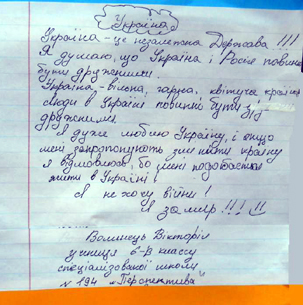 Україна
Україна - це незалежна Держава !!!
Я думаю, що Україна і Росія повинні
бути дружними.
Україна - вільна, гарна, квітуча країна
люди в Україні повинні бути
дружними.
Я дуже люблю Україну, і якщо
мені запропонують змінити країну
я відмовлюся, бо мені подобається
жити в Україні!
Я не хочу війни!
Я за мир!!!
Волинець Вікторія
учениця 6-В классу
спеціалізованої школи
№ 194 "Перспектива"